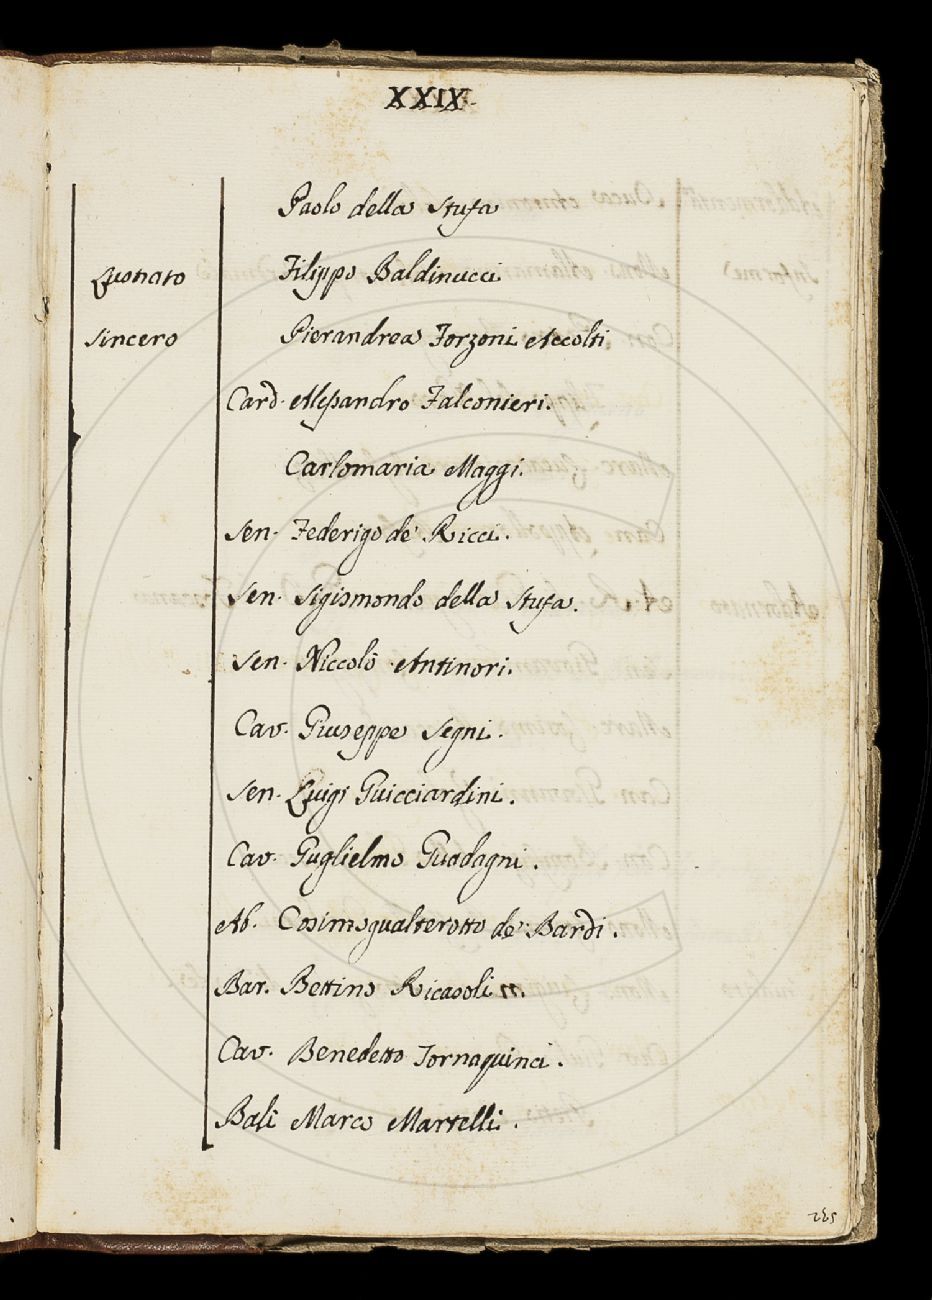 XXIX.
Paolo della Stufa
Lustrato Filippo Baldinucci
Sincero Pierandrea Forzoni Accolti
Card. Alessandro Falconieri.
Carlomaria Maggi.
Sen. Federigo de' Ricci.
Sen. Sigismondo della Stufa.
Sen. Niccolò Antinori.
Cav. Giuseppe Segni.
Sen. Luigi Guicciardini.
Cav. Guglielmo Guadagni.
Ab. Cosimogualterotto de' Bardi.
Bar. Bettino Ricasoli
Cav. Benedetto Tornaquinci.
Balì Marco Martelli.
225